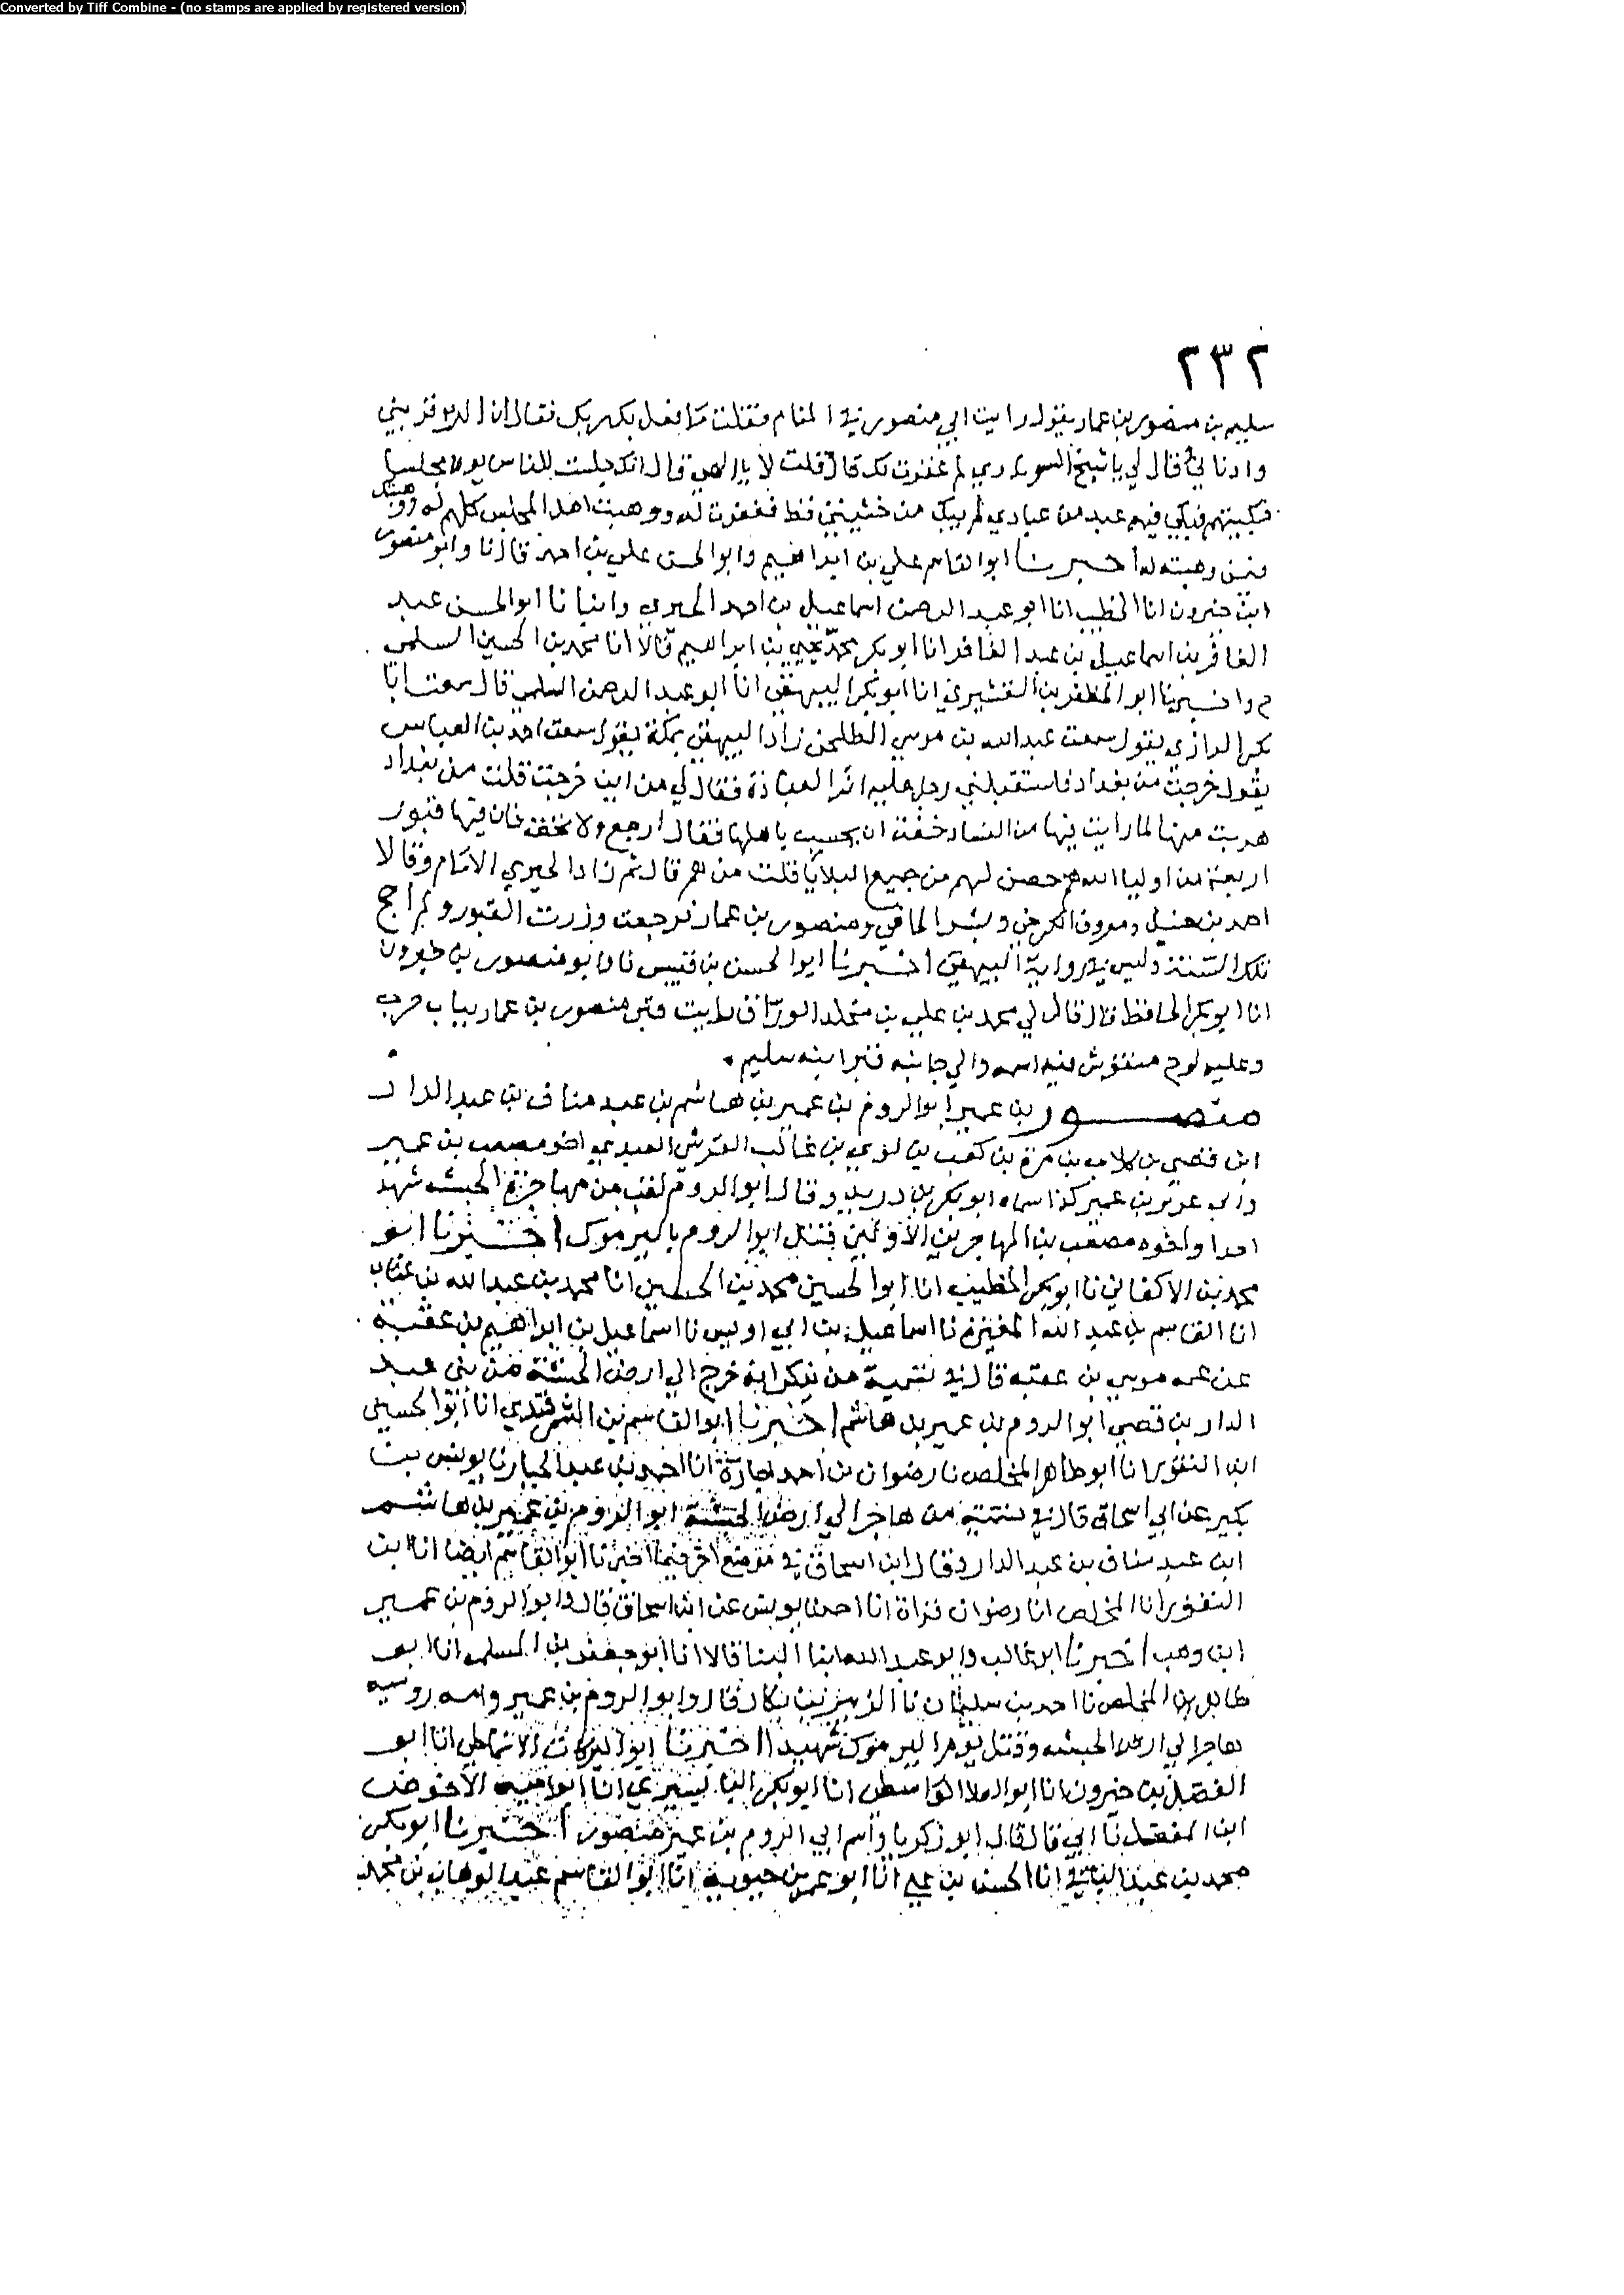 Converted by Tiff Combine - (no stamps are applied by registered version)
٢٣٢
سليم بن منصور بن عمار يقول رايت ابي منصور في المنام فقلت ما فعل بك ربك فقال ان الرب قربني
وادناني قال لي يا شيخ السوء تدري لم غفرت لك قال قلت لا يا الهي قال انك جلست للناس يوما مجلسا
فبكيتهم فبكي فيهم عبد من عبادي لم يبك من خشيتي قط فغفرت له ووهبت اهل المجلس كلهم له ووهبتك
فيمن وهبته له اخبرنا ابوا القاسم علي بن ابراهيم وابوا الحسن علي بن احمد قالا نا وابو منصور
ابن خيرون انا الخطيب انا ابو عبد الرحمن اسماعيل بن احمد الحيري وانبانا ابوا الحسن عبد
الغافر بن اسماعيل بن عبد الغافر انا ابو بكر محمد يحيي بن ابراهيم قالا انا محمد بن الحسين السلمي
ح واخبرنا ابو المظفر بن القشيري انا ابو بكر البيهقي انا ابو عبد الرحمن السلمي قال سمعت ابا
بكر الرازي يقول سمعت عبد الله بن موسي الطلحي زاد البيهقي بمكة يقول سمعت احمد بن العباس
يقول خرجت من بغداد فاستقبلني رجل عليه اثر العبادة فقال لي من اين خرجت قلت من بغداد
هربت منها لما رايت فيها من الفساد خفت ان يخسف باهلها فقال ارجع ولا تخف فان فيها قبور
اربعة من اوليا الله هم حصن لهم من جميع البلايا قلت من هم قال ثم زاد الحيري الامام وقالا
احمد بن حنبل ومعروف الكرخي وبشر الحافي ومنصور بن عمار فرجعت وزرت القبور ولم احج
تلك السنة وليس في رواية البيهقي اخبرنا ابوا الحسن بن قبيس نا وابو منصور بن خيرون
انا ابو بكر الحافظ قال قال لي محمد بن علي بن مخلد الوراق رايت قبر منصور بن عمار بباب حرب
وعليه لوح منقوش فيه اسمه والي جانبه قبر ابنه سليم
منصور بن عمير ابو الروم بن عمير بن هاشم بن عبد مناف بن عبد الدار
ابن قصي بن كلاب بن مرة بن كعب بن لوي بن غالب القرشي العبدري اخو مصعب بن عمير
وابي عزيز بن عمير كذا سماه ابو بكر بن دريد وقال ابو الروم لقب من مهاجرة الحبشه شهد
احدا واخوه مصعب بن المهاجرين الاولين قتل ابو الروم باليرموك اخبرنا ابو
محمد بن الاكفاني نا ابو بكر الخطيب انا ابوا الحسين محمد بن الحسين انا محمد بن عبد الله بن عتاب
انا القاسم بن عبد الله المغيرة نا اسماعيل بن ابي اويس نا اسماعيل بن ابراهيم بن عقبة
عن عمه موسي بن عقبه قال في تسمية من يذكر انه خرج الي ارض الحبشة من بني عبد
الدار بن قصي ابو الروم بن عمير بن هاشم اخبرنا ابو القاسم بن السمرقندي انا ابوا الحسين
ابن النقور انا ابو طاهر المخلص نا رضوان بن احمد اجازة انا احمد بن عبد الجبار نا يونس بن
بكير عن ابي اسحاق قال في تسمية من هاجر الي ارض الحبشة ابو الروم بن عمير بن هاشم
ابن عبد مناف بن عبد الدار وقال ابن اسحاق في موضع اخر فيما اخبرنا ابو القاسم ايضا انا ابن
النقور انا المخلص انا رضوان قراة انا احمد نا يونس عن ابن اسحاق قال وابو الروم بن عمير
ابن وهب اخبرنا ابو غالب وابو عبد الله ابنا البنا قالا انا ابو جعفر بن المسلمه انا ابو
طاهر المخلص نا احمد بن سليمان نا الزبير بن بكار قال وابو الروم بن عمير وامه روميه
هاجر الي ارض الحبشه وقتل يوم اليرموك شهيدا اخبرنا ابو البركات الانماطي انا ابو
الفضل بن خيرون انا ابو العلا الواسطي انا ابو بكر البابسيري انا ابو اميه الاحوص
ابن المفضل نا ابي قال قال ابو زكريا واسم ابي الروم بن عمير منصور اخبرنا ابو بكر
محمد بن عبد الباقي انا الحسن بن علي انا ابو عمر بن حيوية انا ابو القاسم عبد الوهاب بن محمد